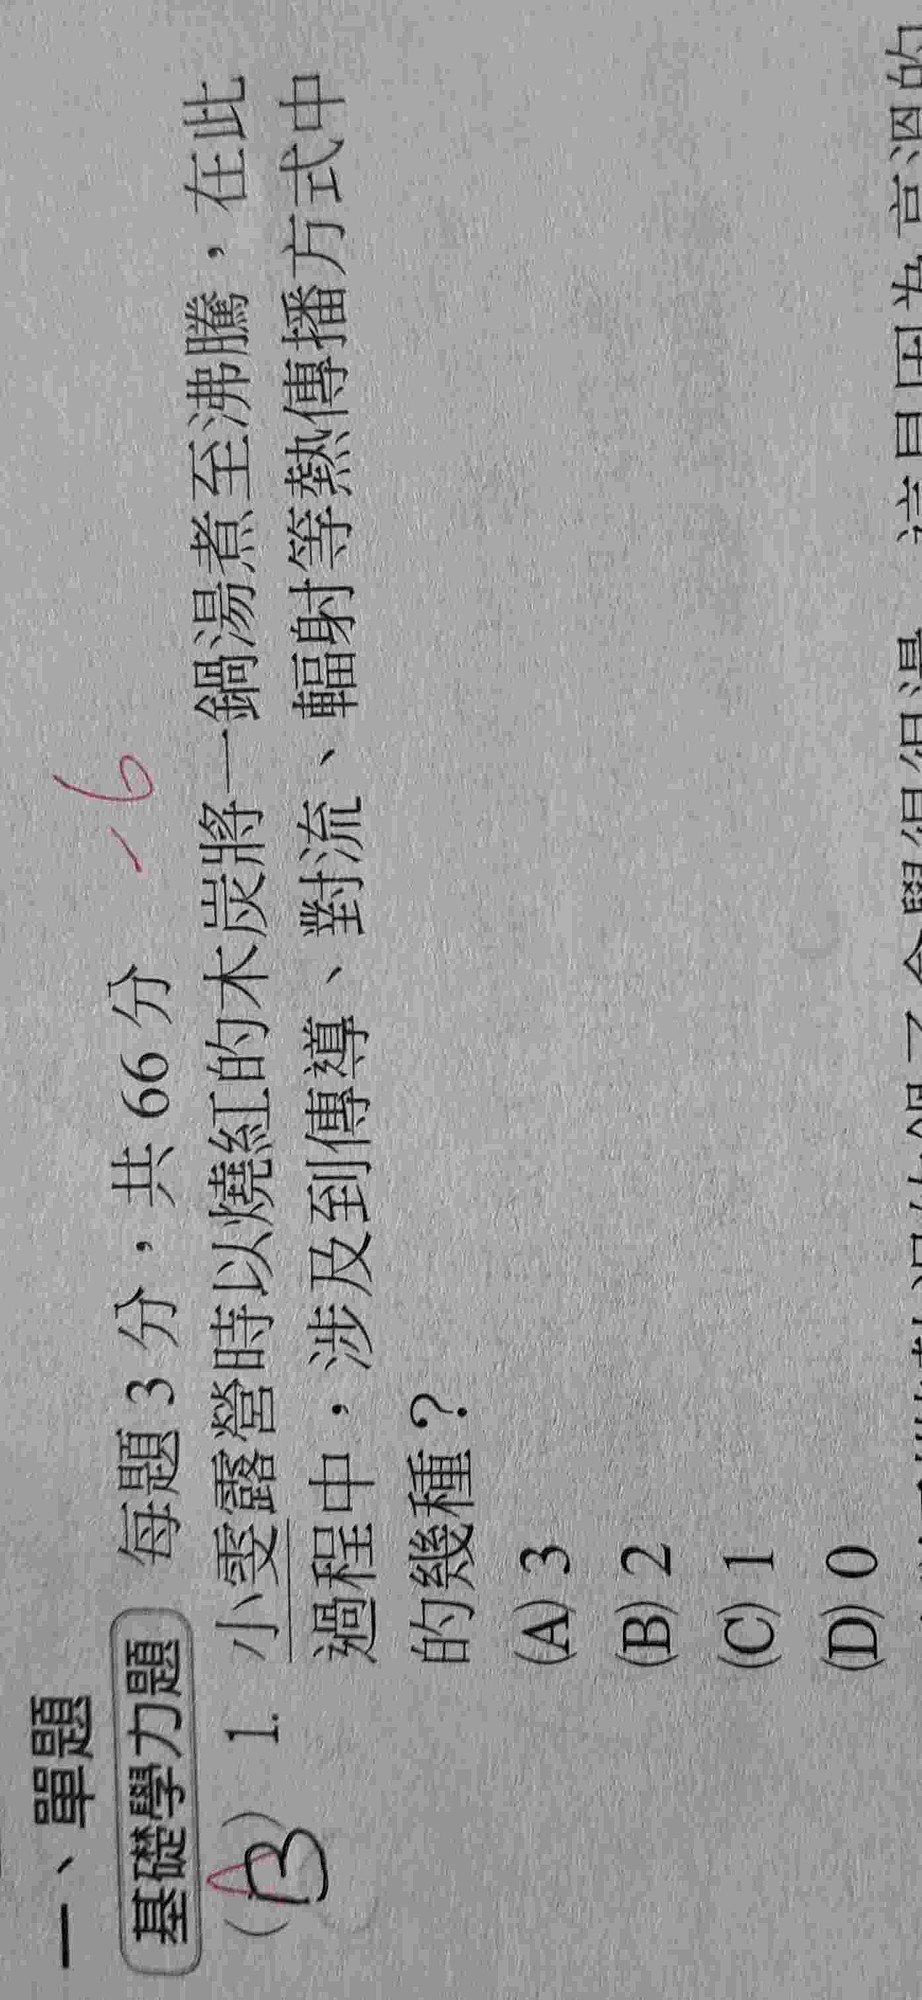 一、單題
基礎學力題 每題3分，共66分 -6
(B) 1. 小雯露營時以燒紅的木炭將一鍋湯煮至沸騰，在此
A
過程中，涉及到傳導、對流、輻射等熱傳播方式中
的幾種？
(A) 3
(B) 2
(C) 1
(D) 0